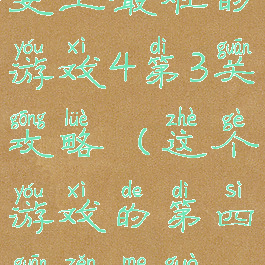 史上最贱的
yóu xì dì guān
游戏4第3关
gōng lüè zhè gè
攻略（这个
yóu xì de dì sì
游戏的第四
guān zěn me guò